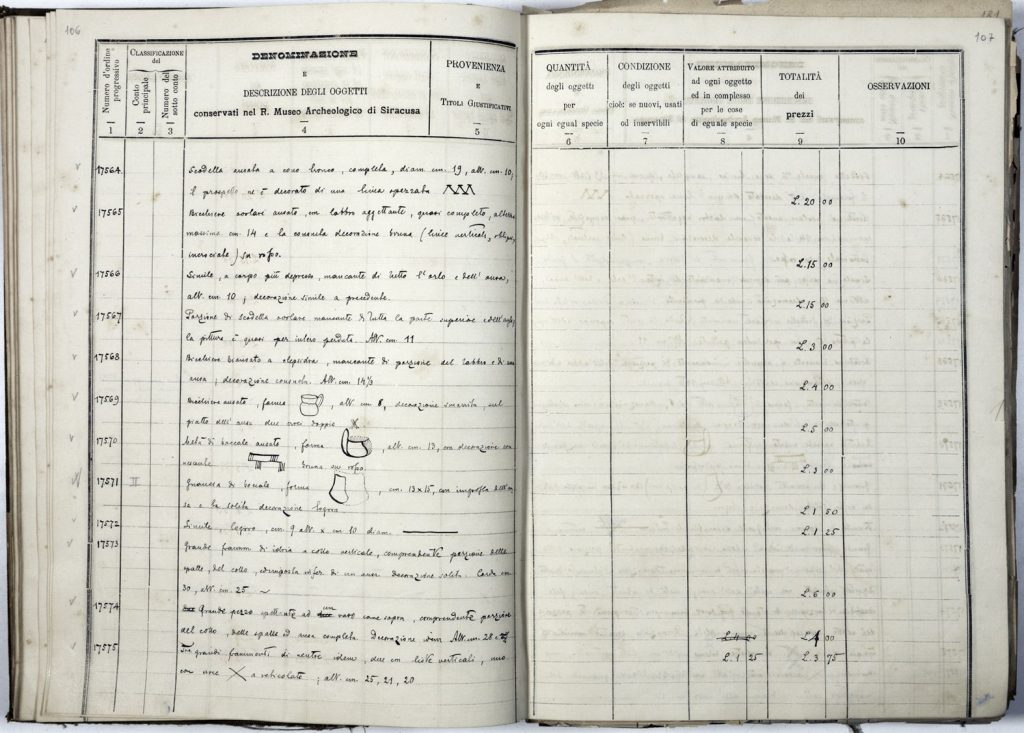 106
Numero d'ordine progressivo
CLASSIFICAZIONE
del
Conto principale
Numero del sotto conto
DENOMINAZIONE
E
DESCRIZIONE DEGLI OGGETTI
conservati nel R. Museo Archeologico di Siracusa
PROVENIENZA
E
TITOLI GIUSTIFICATIVI
1 2 3 4 5
17564 Scodella ansata a cono tronco, completa, diam. cm. 19, alt. cm. 10;
il prospetto ne è decorato di una linea spezzata
17565 Bicchiere ovolare ansato, con labbro aggettante, quasi completo, altezza
massima cm. 14 e la consueta decorazione bruna (linee verticali, oblique,
incrociate) su rosso.
17566 Simile, a corpo più depresso, mancante di tutto l'orlo e dell'ansa,
alt. cm. 10; decorazione simile a precedente.
17567 Porzione di scodella ovolare mancante di tutta la parte superiore e dell'ansa;
la pittura è quasi per intero perduta. Alt. cm. 11
17568 Bicchiere biansato a clepsidra, mancante di porzione del labbro e di una
ansa; decorazione consueta. Alt. cm. 14½
17569 Bicchiere ansato, forma , alt. cm. 8, decorazione smarrita, sul
piatto dell'ansa due croci doppie
17570 Metà di boccale ansato, forma , alt. cm. 13, con decorazione con
bruna su rosso.
17571 II , forma , cm. 13 x 15, con
sa e la solita decorazione logora
17572 Simile, logoro, cm. 9 alt. x cm. 10 diam.
17573 Grande framm. di idria a collo verticale, comprendente porzione delle
spalle, del collo, di un'ansa. Decorazione solita. cm.
30, alt. cm. 25
17574 Grande pezzo spettante ad un vaso come sopra, comprendente porzione
del collo, delle spalle ed ansa completa. Decorazione idem. Alt. cm. 28
17575 Tre grandi frammenti di ventre idem, due con liste verticali, uno
con una X a reticolato; alt. cm. 25, 21, 20
107
QUANTITÀ
degli oggetti
per
ogni egual specie
CONDIZIONE
degli oggetti
cioè: se nuovi, usati
od inservibili
VALORE ATTRIBUITO
ad ogni oggetto
ed in complesso
per le cose
di eguale specie
TOTALITÀ
dei
prezzi
OSSERVAZIONI
6 7 8 9 10
L. 20 00
L. 15 00
L. 15 00
L. 3 00
L. 4 00
L. 5 00
L. 3 00
L. 1 50
L. 1 25
L. 6 00
L. 4 00 L. 4 00
L. 1 25 L. 3 75